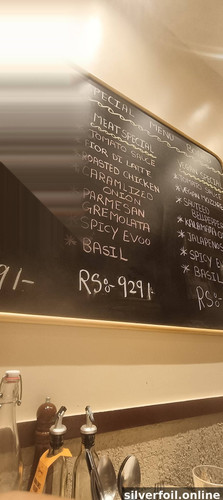 SPECIAL MENU
MEAT SPECIAL
TOMATO SAUCE
FIOR DI LATTE
ROASTED CHICKEN
* CARAMLIZED
ONION
PARMESAN
GREMOLATA
* SPICY EVOO
* BASIL
RS:- 929/-
91/-
* TOMATO
* VEGAN
* SAUTEED
* KALAMATA
* JALAPENO
* SPICY EV
* BASIL
RS:
silverfoil.online